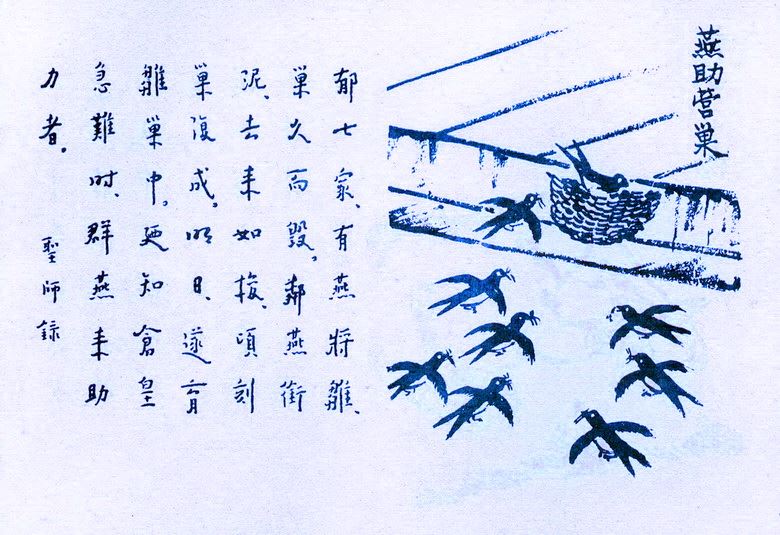 燕助营巢
郁七家、有燕将雛、
巢久而毁。鄰燕銜
泥、去来如梭、頃刻
巢復成。明日、遂育
雛巢中。廼知倉皇
急難时、群燕来助
力者。
聖师録